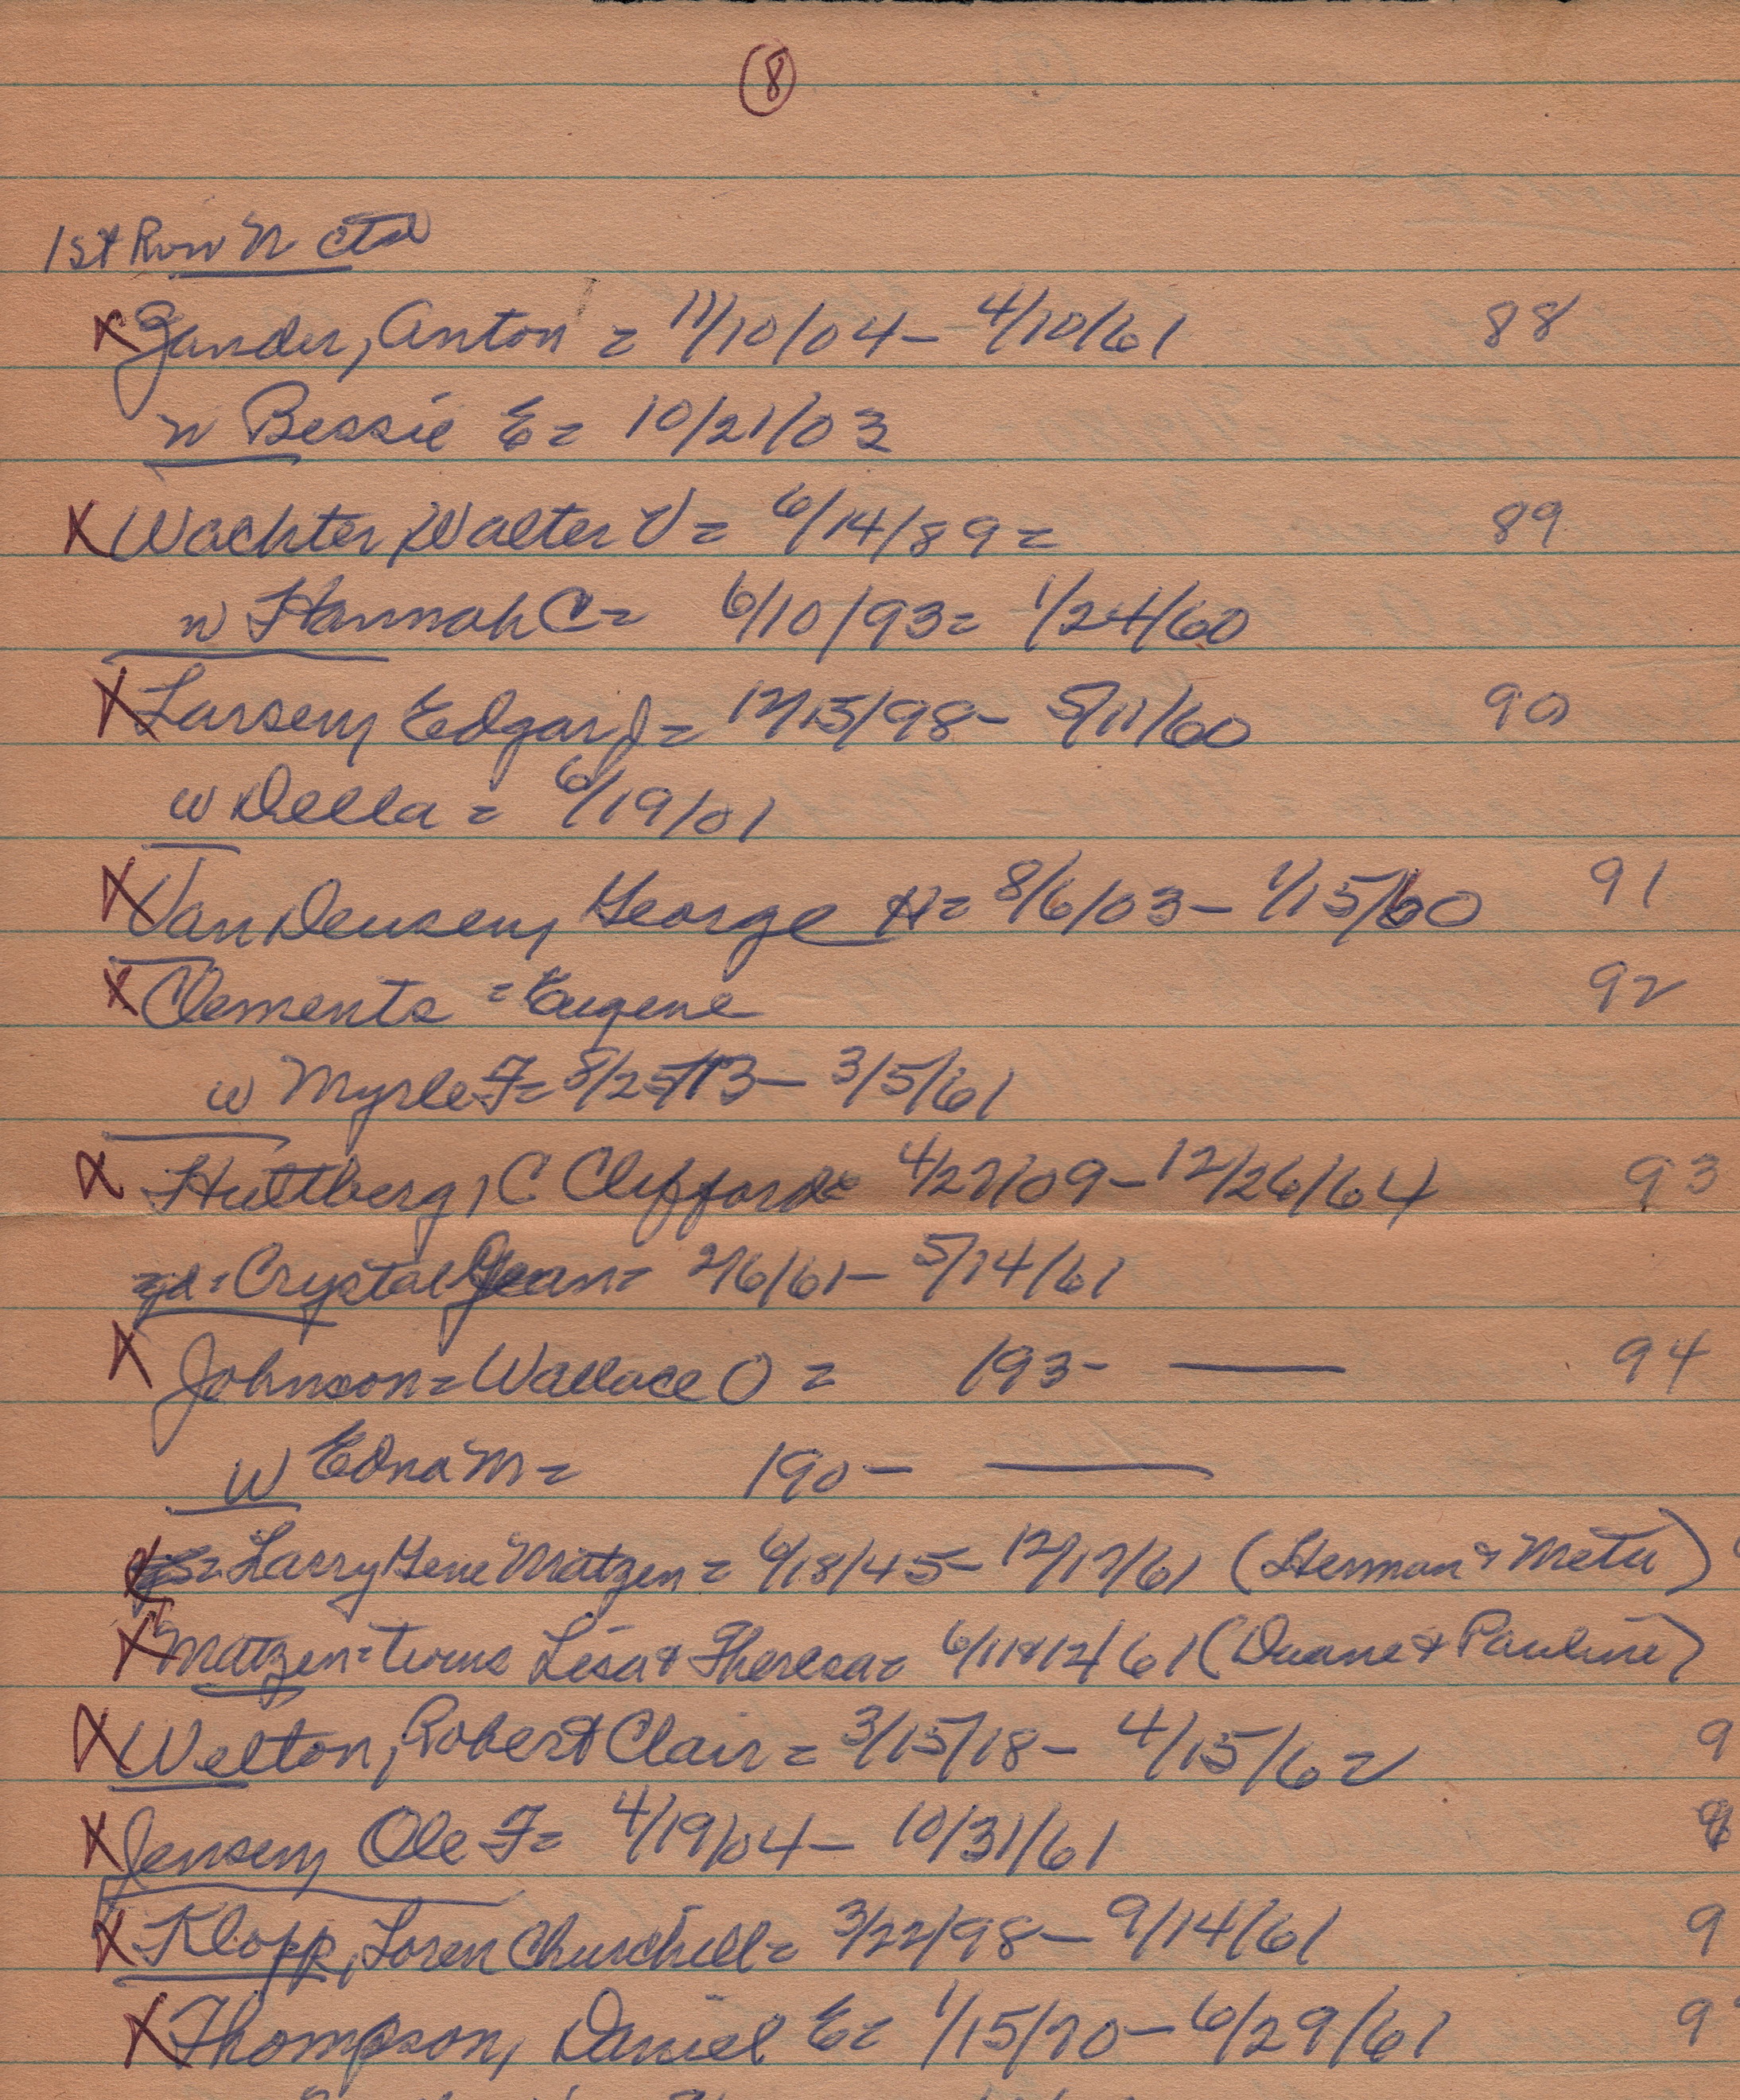 8
1st Row N ctd
X Zander, Anton = 11/10/04 – 4/10/61 88
w Bessie E = 10/21/03
X Wachter, Walter V = 6/14/89 = 89
w Hannah C = 6/10/93 = 1/24/60
X Larsen, Edgar J = 12/15/98 – 5/11/60 90
w Della = 6/19/01
X Van Deusen, George H = 8/6/03 – 1/15/60 91
X Clements = Eugene 92
w Myrle F = 8/25/13 – 3/5/61
X Hultberg, C Clifford = 4/27/09 – 12/26/64 93
gd = Crystal Jean = 2/6/61 – 5/14/61
X Johnson = Wallace O = 193- —— 94
w Edna M = 190 – ——
X Larry Gene Matzen = 6/18/45 – 12/17/61 (Herman & Meta)
X Matzen = twins Lisa & Theresa = 6/11&12/61 (Duane & Pauline)
X Welton, Robert Clair = 3/15/18 – 4/15/62 9
X Jensen, Ole F = 4/19/04 – 10/31/61 9
X Klopp, Loren Churchill = 3/22/98 – 9/14/61 9
X Thompson, Daniel E = 1/15/70 – 6/29/61 9